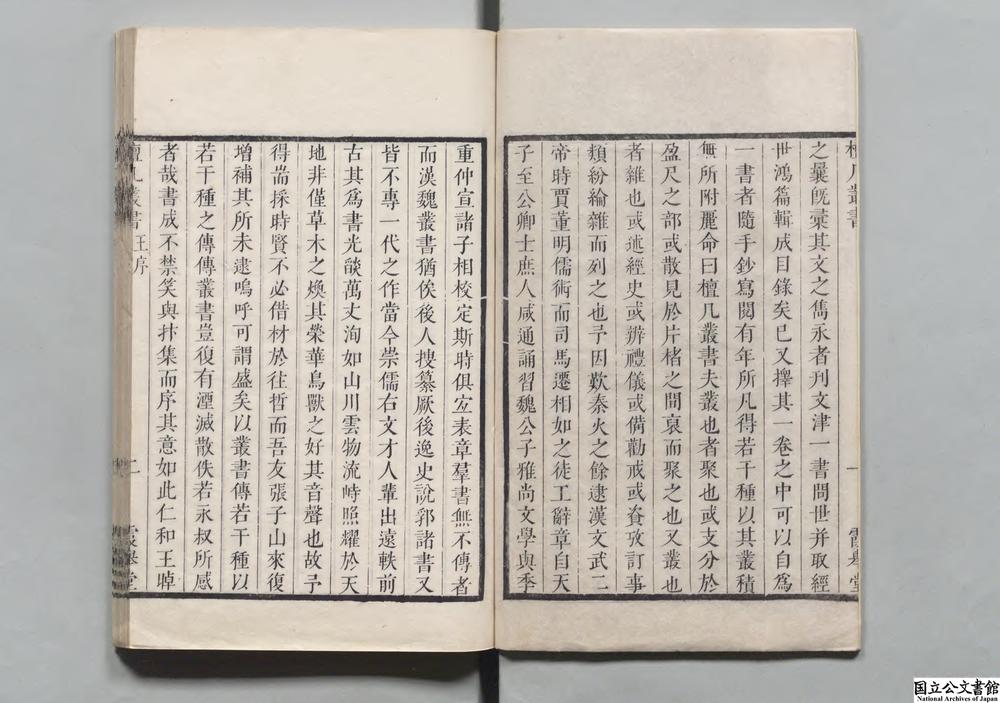 檀几叢書
一
霞舉堂
之彙旣彚其文之雋永者刊文津一書問世并取經
世鴻篇輯成目錄矣已又擇其一卷之中可以自爲
一書者隨手鈔寫閱有年所凡得若干種以其叢積
無所附麗命曰檀几叢書夫叢也者聚也或支分於
盈尺之部或散見於片楮之間裒而聚之也又叢也
者雜也或述經史或辨禮儀或備勸戒或資攷訂事
類紛綸雜而列之也予因歎秦火之餘逮漢文武二
帝時賈董明儒術而司馬遷相如之徒工辭章自天
子至公卿士庶人咸通誦習魏公子雅尚文學與季
重仲宣諸子相校定斯時俱宏表章羣書無不傳者
而漢魏叢書猶俟後人搜纂厥後逸史說郛諸書又
皆不專一代之作當今崇儒右文才人輩出遠軼前
古其爲書光燄萬丈洵如山川雲物流峙照耀於天
地非僅草木之煥其榮華鳥獸之好其音聲也故予
得耑採時賢不必借材於往哲而吾友張子山來復
增補其所未逮嗚呼可謂盛矣以叢書傳若干種以
若干種之傳傳叢書豈復有湮滅散佚若永叔所感
者哉書成不禁笑與抃集而序其意如此仁和王晫
檀几叢書王序
二
霞舉堂
国立公文書館
National Archives of Japan